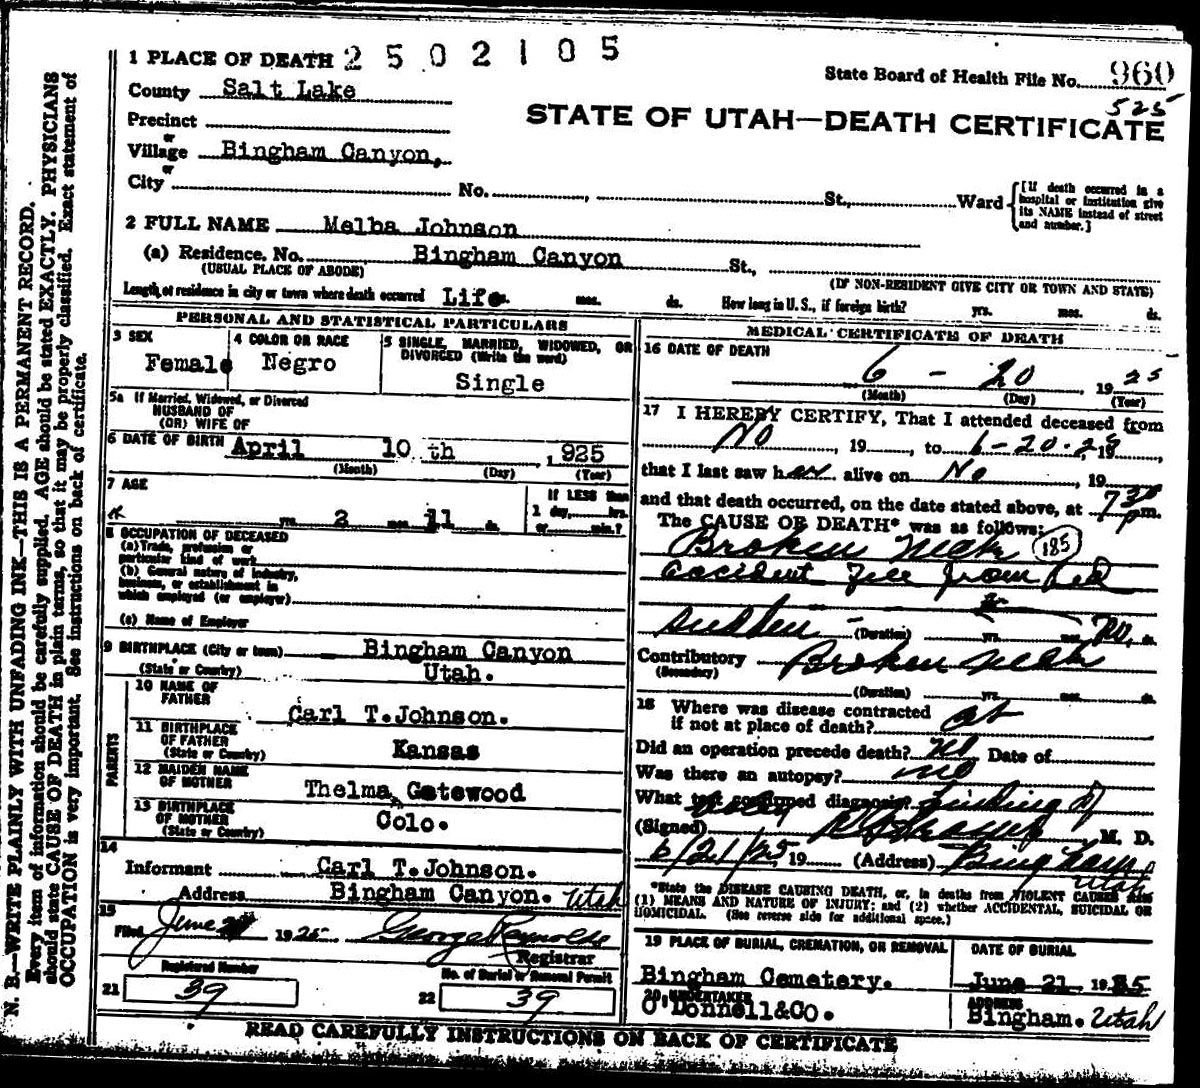 2502105
1 PLACE OF DEATH
State Board of Health File No. 960
525
County Salt Lake
STATE OF UTAH—DEATH CERTIFICATE
Precinct
or
Village Bingham Canyon,
or
City No. , St., Ward [If death occurred in a hospital or institution give its NAME instead of street and number.]
2 FULL NAME Melba Johnson
(a) Residence. No. Bingham Canyon St.,
(USUAL PLACE OF ABODE) (IF NON-RESIDENT GIVE CITY OR TOWN AND STATE)
Length of residence in city or town where death occurred Life yrs. mos. ds. How long in U. S., if foreign birth? yrs. mos. ds.
PERSONAL AND STATISTICAL PARTICULARS
3 SEX Female
4 COLOR OR RACE Negro
5 SINGLE, MARRIED, WIDOWED, OR DIVORCED (Write the word)
Single
5a If Married, Widowed, or Divorced
HUSBAND OF
(OR) WIFE OF
6 DATE OF BIRTH April 10 th , 925
(Month) (Day) (Year)
7 AGE
If LESS than
1 day, hrs.
or min.?
yrs. 2 mos. 11 ds.
8 OCCUPATION OF DECEASED
(a) Trade, profession or
particular kind of work
(b) General nature of industry,
business, or establishment in
which employed (or employer)
(c) Name of Employer
9 BIRTHPLACE (City or town) Bingham Canyon
(State or Country) Utah.
PARENTS
10 NAME OF
FATHER Carl T.Johnson.
11 BIRTHPLACE
OF FATHER
(State or Country) Kansas
12 MAIDEN NAME
OF MOTHER Thelma Gatewood
13 BIRTHPLACE
OF MOTHER
(State or Country) Colo.
14
Informant Carl T.Johnson.
Address Bingham Canyon. Utah
15
Filed June 1925 George Reynolds
Registrar
Registered Number
21 39
No. of Burial or Removal Permit
22 39
MEDICAL CERTIFICATE OF DEATH
16 DATE OF DEATH
6 - 20 1925
(Month) (Day) (Year)
17 I HEREBY CERTIFY, That I attended deceased from
No 19 , to 6-20-25, 19 ,
that I last saw her alive on No , 19
and that death occurred, on the date stated above, at 7 30 pm.
The CAUSE OF DEATH* was as follows:
Broken Neck (185)
accident Fell from Bed
Sudden - (Duration) yrs. mos. ds.
Contributory Broken Neck
(Secondary)
(Duration) yrs. mos. ds.
18 Where was disease contracted
if not at place of death? at
Did an operation precede death? No Date of
Was there an autopsy? no
What test confirmed diagnosis? finding of
body
(Signed) M. D.
6/21/25 19 (Address) Bingham
Utah
*State the DISEASE CAUSING DEATH, or, in deaths from VIOLENT CAUSES state
(1) MEANS AND NATURE OF INJURY; and (2) whether ACCIDENTAL, SUICIDAL OR
HOMICIDAL. (See reverse side for additional space.)
19 PLACE OF BURIAL, CREMATION, OR REMOVAL
Bingham Cemetery.
DATE OF BURIAL
June 21 1925
20 UNDERTAKER
O'Donnell&Co.
ADDRESS
Bingham. Utah
READ CAREFULLY INSTRUCTIONS ON BACK OF CERTIFICATE
N. B.—WRITE PLAINLY WITH UNFADING INK—THIS IS A PERMANENT RECORD.
Every item of information should be carefully supplied. AGE should be stated EXACTLY. PHYSICIANS
should state CAUSE OF DEATH in plain terms, so that it may be properly classified. Exact statement of
OCCUPATION is very important. See instructions on back of certificate.